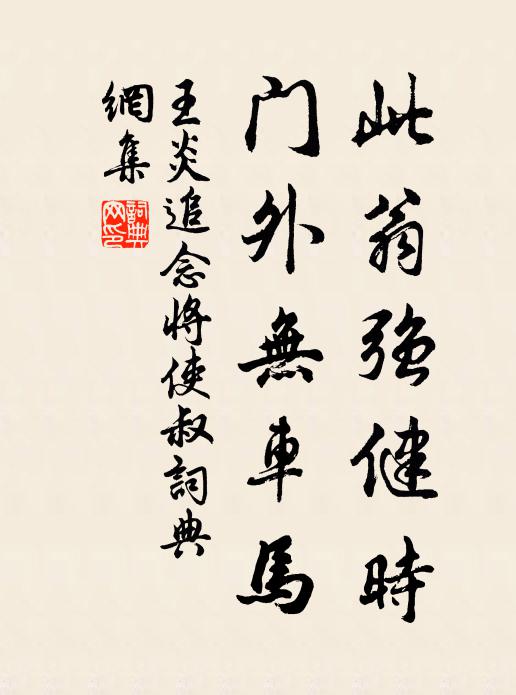 此翁強健時
門外無車馬
王炎追念將使叔詞典
網集
詞典網印